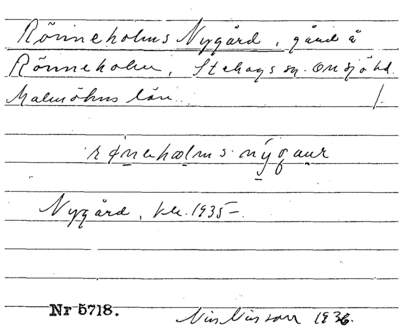 Rönneholms Nygård, gård å
Rönneholm, Stehags sn. Onsjö hd.
Malmöhus län.
rønəhɷlms nýgaʊr
Nygård, kh. 1935–
Nr 5718.
Nils Nilsson 1936.